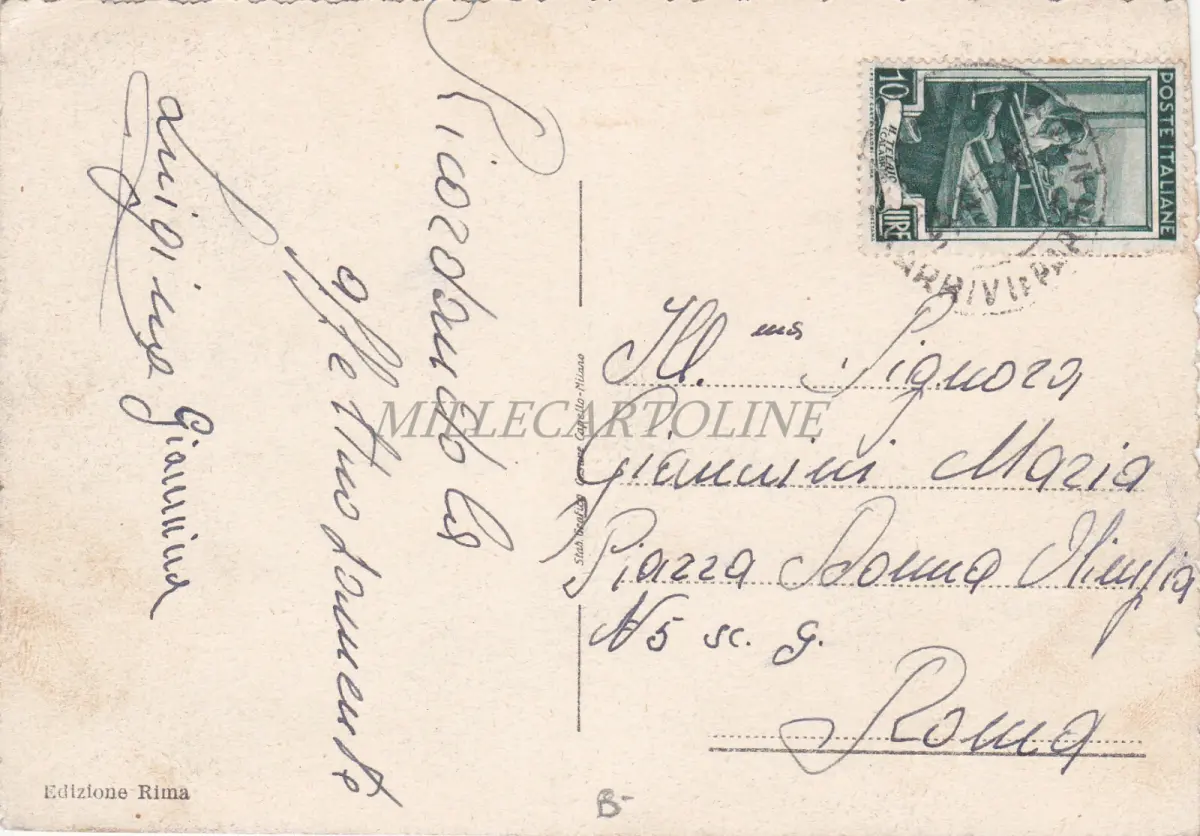 Ricordandola
affettuosamente
Luigina Giannina
POSTE ITALIANE
10
IL TELAIO
LIRE
ARRIVI E PAR
Ill.ma Signora
Giannini Maria
Piazza Donna Olimpia
N 5 sc. g.
Roma
MILLECARTOLINE
Stab. Grafico Cesare Capello-Milano
Edizione Rima
B-